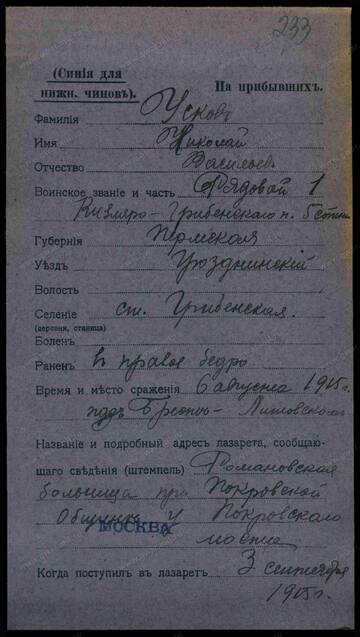 233
(Синія для
нижн. чиновъ).
На прибывшихъ.
Фамилія Усковъ
Имя Николай
Отчество Васильев
Воинское званіе и часть Рядовой 1
Кизляро-Гребенскаго п. 5 сотни
Губернія
Уѣздъ
Волость
Селеніе ст. Гребенская.
(деревня, станица)
Боленъ
Раненъ въ правое бедро
Время и мѣсто сраженія 6 августа 1915 г.
подъ Брестъ-Литовскомъ
Названіе и подробный адресъ лазарета, сообщаю-
щаго свѣдѣнія (штемпель) Романовская
больница при Покровской
Общинѣ у Покровскаго
МОСКВА
моста
Когда поступилъ въ лазаретъ 3 сентября
1915 г.